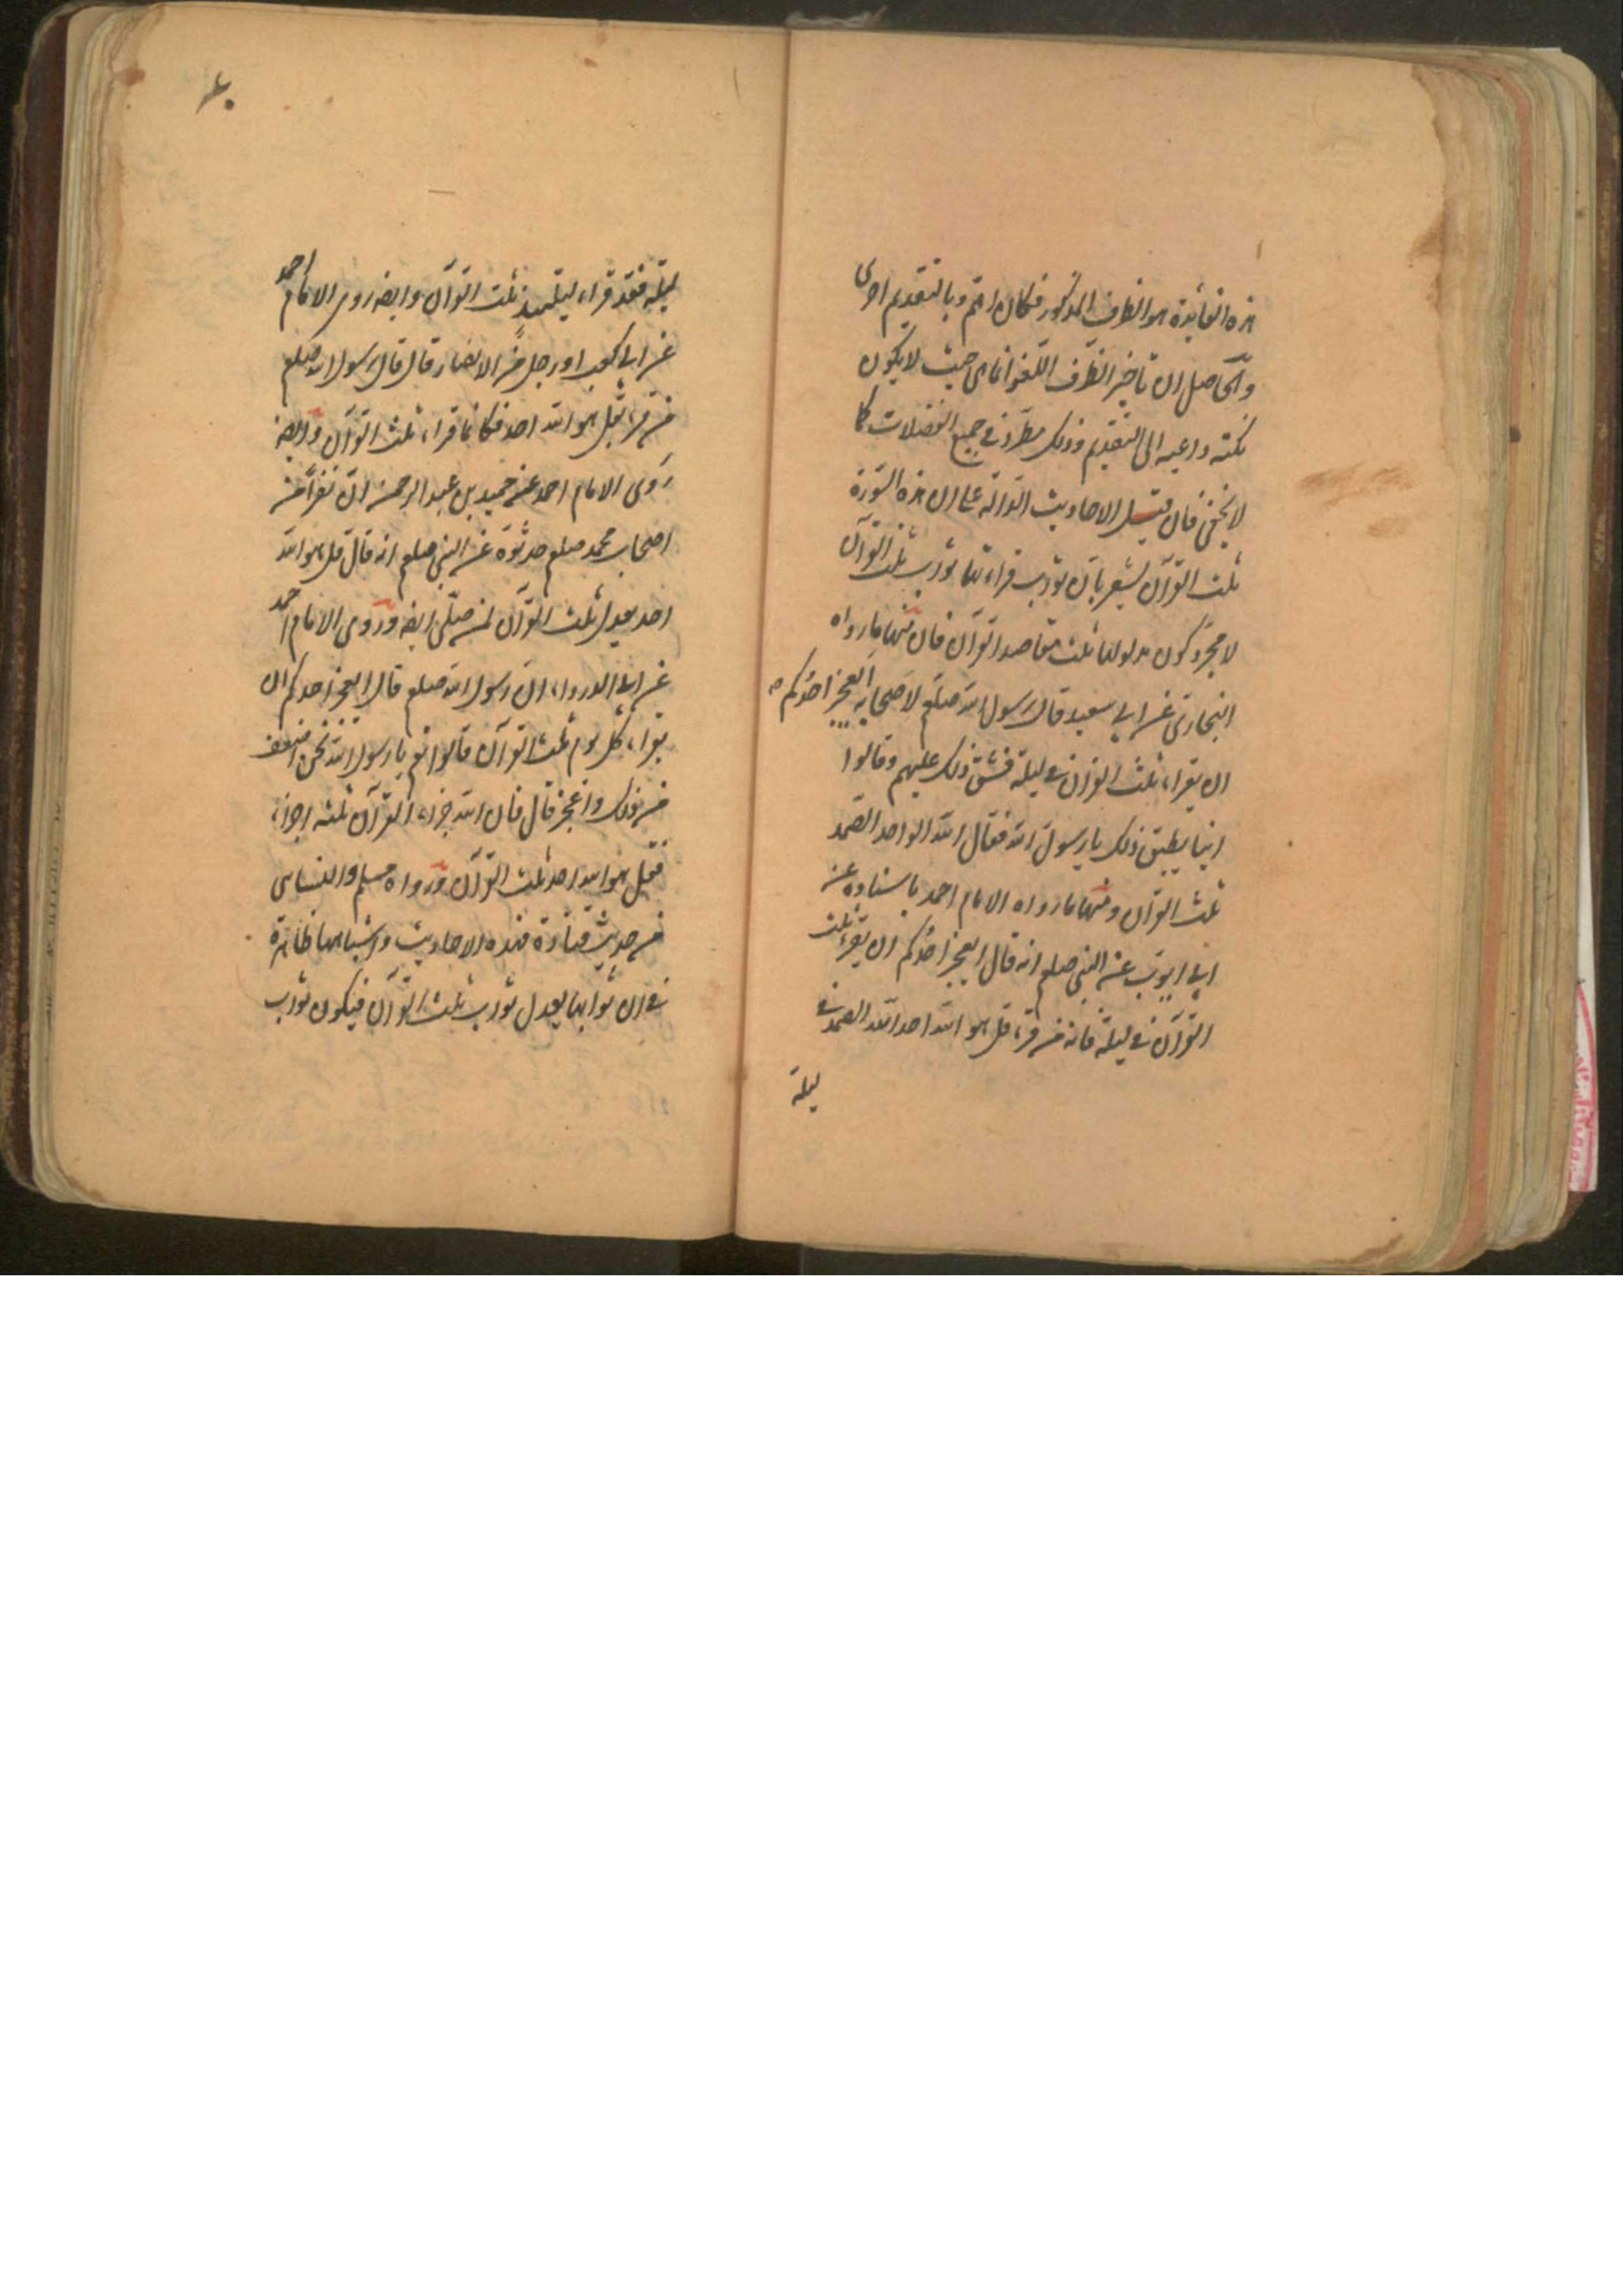 هذه الفائدة هو الظرف المذكور فكان اهم وبالتقديم احرى
والحاصل ان تاخير الظرف اللغو انما هي حيث لا يكون
نكتة داعية الى التقديم وذلك مطرد في جميع الفضلات كما
لا يخفى فان قيل الاحاديث الدالة على ان هذه السورة
ثلث القرآن يشعر بان ثواب قراءتها ثواب ثلث القرآن
لا مجرد كون مدلولها ثلث مقاصد القرآن فان منها ما رواه
البخارى عن ابى سعيد قال رسول الله صلعم لاصحابه ايعجز احدكم
ان يقراء ثلث القرآن في ليلة فشق ذلك عليهم وقالوا
اينا يطيق ذلك يا رسول الله فقال الله الواحد الصمد
ثلث القرآن ومنها ما رواه الامام احمد باسناده عن
ابى ايوب عن النبى صلعم انه قال ايعجز احدكم ان يقرء ثلث
القرآن في ليلة فانه من قرء قل هو الله احد الله الصمد في
ليلة
ليلة فقد قراء ليلتئذ ثلث القرآن وايضه روى الامام احمد
عن ابى كعب او رجل من الانصار قال قال رسول الله صلعم
من قرء بقل هو الله احد فكانما قراء ثلث القرآن وايضه
روى الامام احمد عن حميد بن عبد الرحمن ان نفرا من
اصحاب محمد صلعم حدثوه عن النبى صلعم انه قال قل هو الله
احد يعدل ثلث القرآن لمن صلى ايضه وروى الامام احمد
عن ابى الدرداء ان رسول الله صلعم قال ايعجز احدكم ان
يقراء كل يوم ثلث القرآن قالوا نعم يا رسول الله نحن اضعف
من ذلك واعجز قال فان الله جزاء القرآن ثلثه اجزاء
فقل هو الله احد ثلث القرآن ورواه مسلم والنسائى
من حديث قتادة فهذه الاحاديث واشباهها ظاهرة
في ان ثوابها يعدل ثواب ثلث القرآن فيكون ثواب